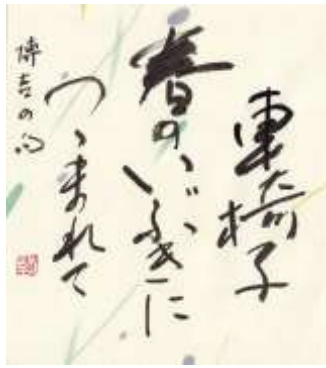 車椅子
春のいぶきに
つゝまれて
博吉の句